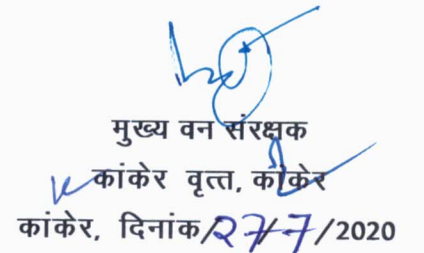 मुख्य वन संरक्षक
कांकेर वृत्त, कांकेर
कांकेर, दिनांक/27/7/2020